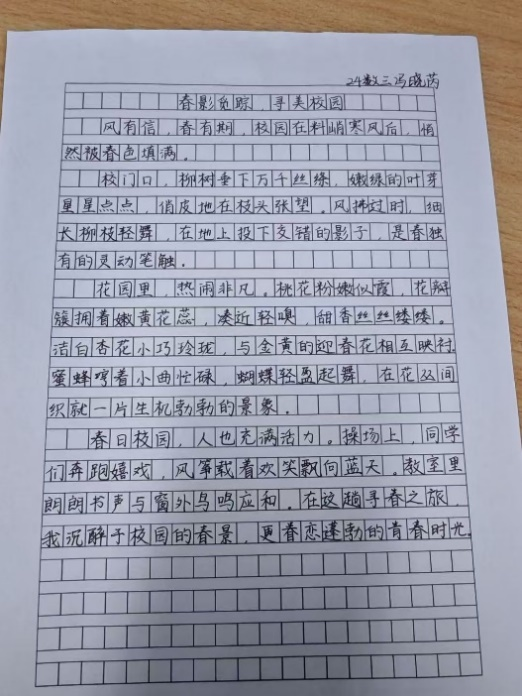 24数三冯晓芮
春影觅踪，寻美校园
风有信，春有期，校园在料峭寒风后，悄
然被春色填满。
校门口，柳树垂下万千丝绦，嫩绿的叶芽
星星点点，俏皮地在枝头张望。风拂过时，细
长柳枝轻舞，在地上投下交错的影子，是春独
有的灵动笔触。
花园里，热闹非凡。桃花粉嫩似霞，花瓣
簇拥着嫩黄花蕊，凑近轻嗅，甜香丝丝缕缕。
洁白杏花小巧玲珑，与金黄的迎春花相互映衬。
蜜蜂哼着小曲忙碌，蝴蝶轻盈起舞，在花丛间
织就一片生机勃勃的景象。
春日校园，人也充满活力。操场上，同学
们奔跑嬉戏，风筝载着欢笑飘向蓝天。教室里
朗朗书声与窗外鸟鸣应和。在这趟寻春之旅，
我沉醉于校园的春景，更眷恋蓬勃的青春时光。